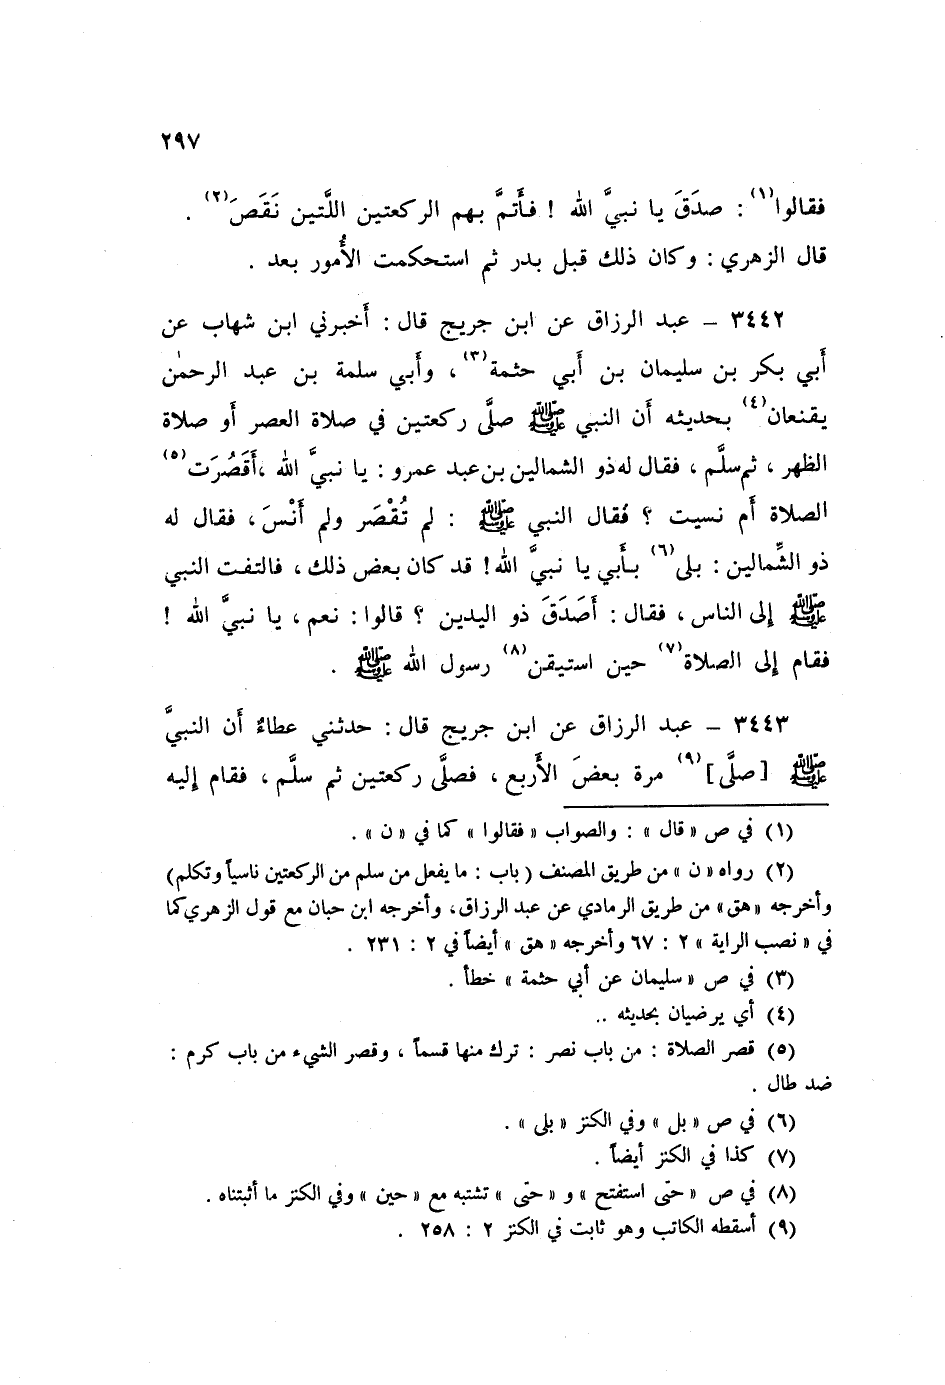 ٢٩٧
فقالوا(١) : صدَقَ يا نبيَّ الله ! فأَتمَّ بهم الركعتين اللَّتين نَقَصَ(٢) .
قال الزهري : وكان ذلك قبل بدر ثم استحكمت الأُمور بعد .
٣٤٤٢ – عبد الرزاق عن ابن جريج قال : أَخبرني ابن شهاب عن
أَبي بكر بن سليمان بن أَبي حثمة(٣) ، وأَبي سلمة بن عبد الرحمٰن
يقنعان(٤) بحديثه أَن النبي ﷺ صلَّى ركعتين في صلاة العصر أَو صلاة
الظهر ، ثم سلَّم ، فقال له ذو الشمالين بن عبد عمرو : يا نبيَّ الله ، أَقَصُرَت(٥)
الصلاة أَم نسيت ؟ فقال النبي ﷺ : لم تُقْصَر ولم أَنْسَ ، فقال له
ذو الشِّمالين : بلى(٦) بأَبي يا نبيَّ الله ! قد كان بعض ذلك ، فالتفت النبي
ﷺ إلى الناس ، فقال : أَصَدَقَ ذو اليدين ؟ قالوا : نعم ، يا نبيَّ الله !
فقام إلى الصلاة(٧) حين استيقن(٨) رسول الله ﷺ .
٣٤٤٣ – عبد الرزاق عن ابن جريج قال : حدثني عطاءٌ أَن النبيَّ
ﷺ [صلَّى](٩) مرة بعضَ الأَربع ، فصلَّى ركعتين ثم سلَّم ، فقام إليه
(١) في ص « قال » : والصواب « فقالوا » كما في « ن » .
(٢) رواه « ن » من طريق المصنف ( باب : ما يفعل من سلم من الركعتين ناسياً وتكلم)
وأخرجه « هق » من طريق الرمادي عن عبد الرزاق، وأخرجه ابن حبان مع قول الزهري كما
في « نصب الراية » ٢ : ٦٧ وأخرجه « هق » أيضاً في ٢ : ٢٣١ .
(٣) في ص « سليمان عن أبي حثمة » خطأ .
(٤) أي يرضيان بحديثه ..
(٥) قصر الصلاة : من باب نصر : ترك منها قسماً ، وقصر الشيء من باب كرم :
ضد طال .
(٦) في ص « بل » وفي الكنز « بلى » .
(٧) كذا في الكنز أيضاً .
(٨) في ص « حتى استفتح » و « حتى » تشتبه مع « حين » وفي الكنز ما أثبتناه .
(٩) أسقطه الكاتب وهو ثابت في الكنز ٢ : ٢٥٨ .